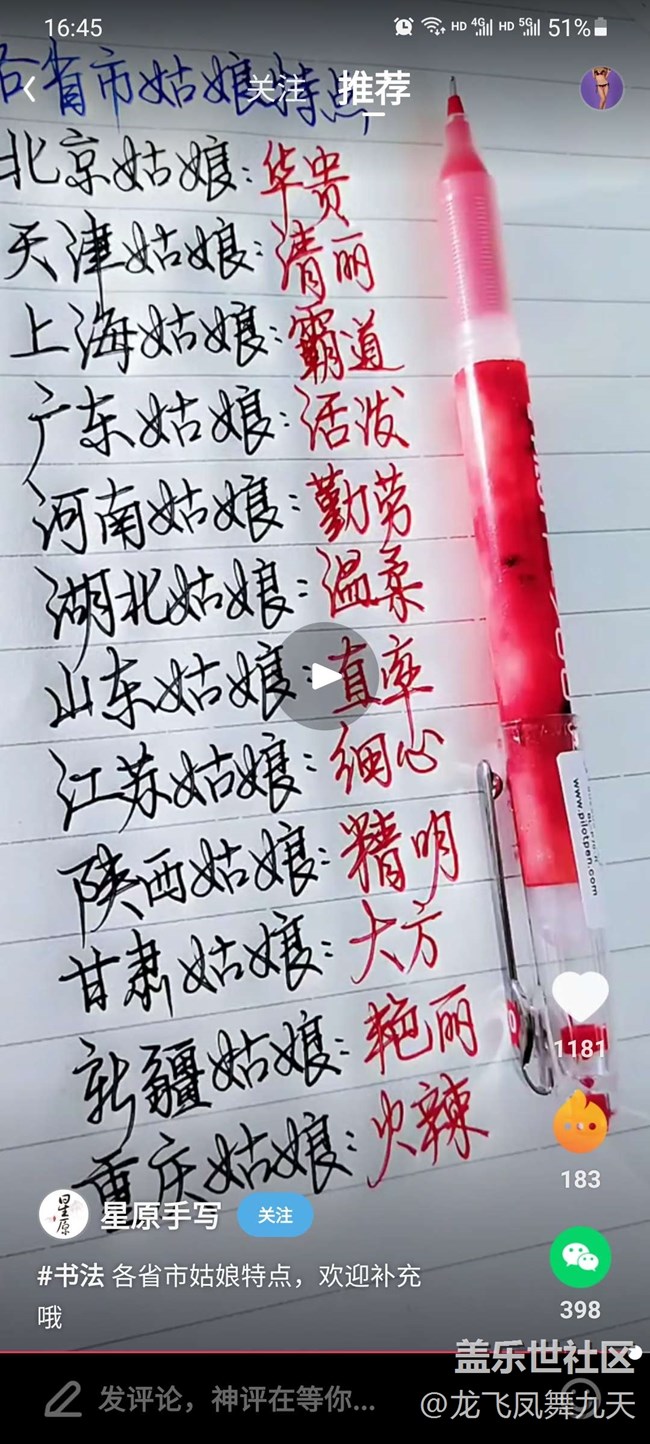 16:45
HD 4G HD 5G 51%
各省市姑娘特点
关注 推荐
北京姑娘：华贵
天津姑娘：清丽
上海姑娘：霸道
广东姑娘：活泼
河南姑娘：勤劳
湖北姑娘：温柔
山东姑娘：直率
江苏姑娘：细心
www.pilotpen.com
陕西姑娘：精明
甘肃姑娘：大方
新疆姑娘：艳丽
1181
重庆姑娘：火辣
183
星原
星原手写 关注
#书法 各省市姑娘特点，欢迎补充
哦
398
盖乐世社区
发评论，神评在等你...
@龙飞凤舞九天